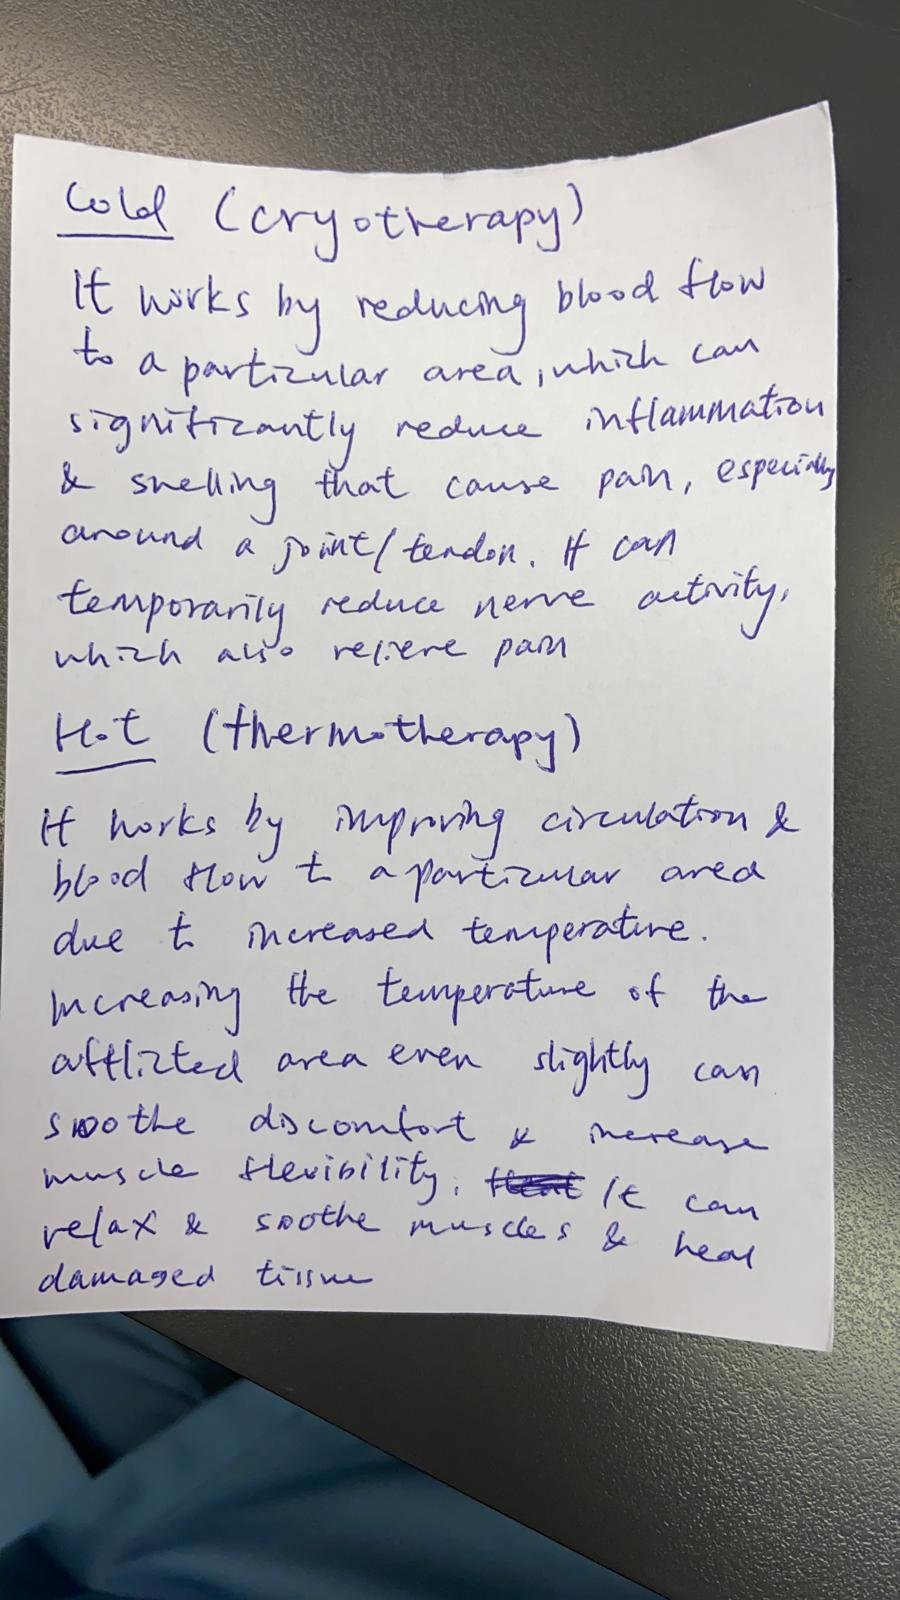 Cold (cryotherapy)
It works by reducing blood flow
to a particular area, which can
significantly reduce inflammation
& swelling that cause pain, especially
around a joint/tendon. It can
temporarily reduce nerve activity,
which also relieve pain
Hot (thermotherapy)
It works by improving circulation &
blood flow to a particular area
due to increased temperature.
Increasing the temperature of the
afflicted area even slightly can
soothe discomfort & increase
muscle flexibility. It can
relax & soothe muscles & heal
damaged tissue